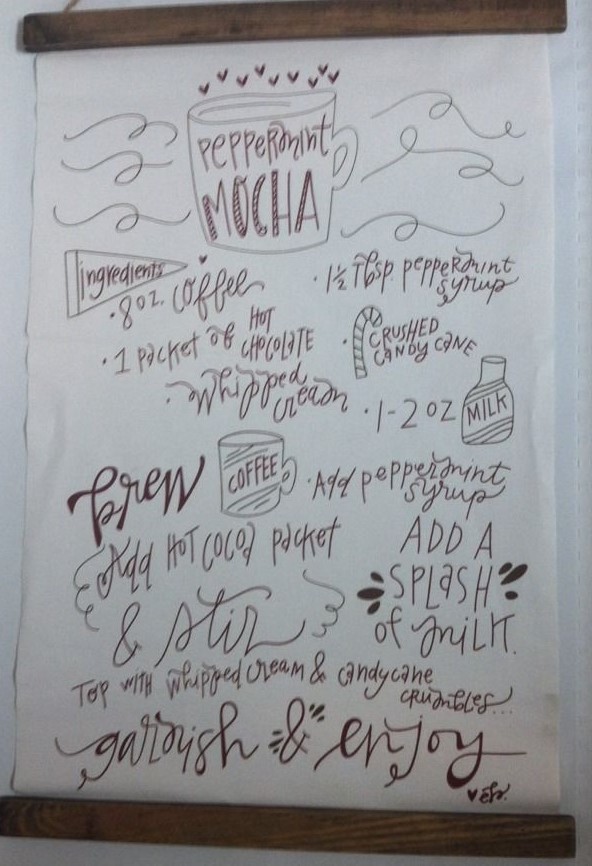 PEPPERMINT
MOCHA
ingredients
• 8 oz. coffee
• 1 packet of HOT
CHOCOLATE
• whipped
cream
• 1½ Tbsp peppermint
syrup
• CRUSHED
CANDY CANE
• 1-2 oz MILK
brew COFFEE
• Add peppermint
syrup
Add HOT COCOA packet
& stir
ADD A
SPLASH
of milK.
TOP WITH whipped cream & candy cane
crumbles...
garnish & enjoy